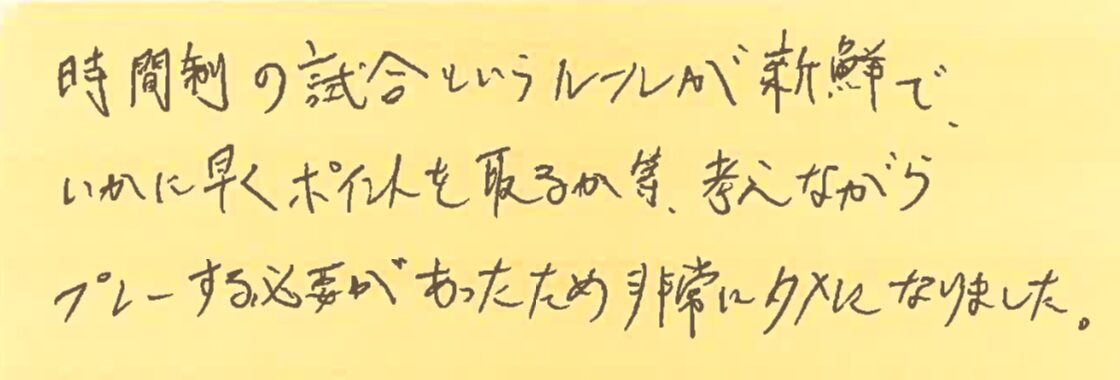 時間制の試合というルールが新鮮で、
いかに早くポイントを取るか等、考えながら
プレーする必要があったため非常にタメになりました。